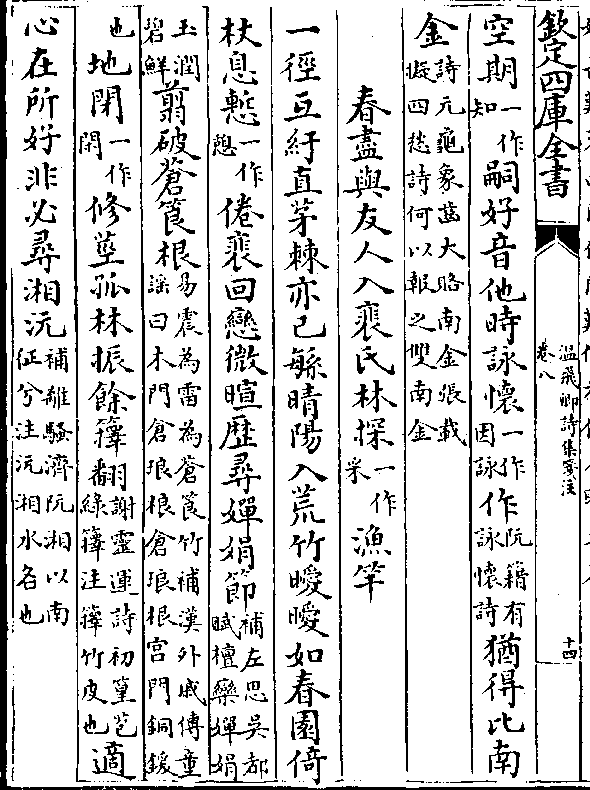 欽定四庫全書
溫飛卿詩集箋注
卷八
十四
空期一作知嗣好音他時詠懷一作因詠作阮籍有詠懷詩猶得比南
金詩元龜象齒大賂南金張載擬四愁詩何以報之雙南金
春盡與友人入裵氏林探一作采漁竿
一徑互紆直茅棘亦已緐晴陽入荒竹曖曖如春園倚
杖息慙一作憩倦裵回戀微暄歴尋嬋娟節補左思吳都賦檀欒嬋娟
玉潤碧鮮翦破蒼筤根易震為雷為蒼筤竹補漢外戚傳童謠曰木門倉琅根倉琅根宮門銅鍰
也地閉一作閑修莖孤林振餘籜翻謝靈運詩初篁苞綠籜注籜竹皮也適
心在所好非必尋湘沅補離騷濟沅湘以南征兮注沅湘水名也